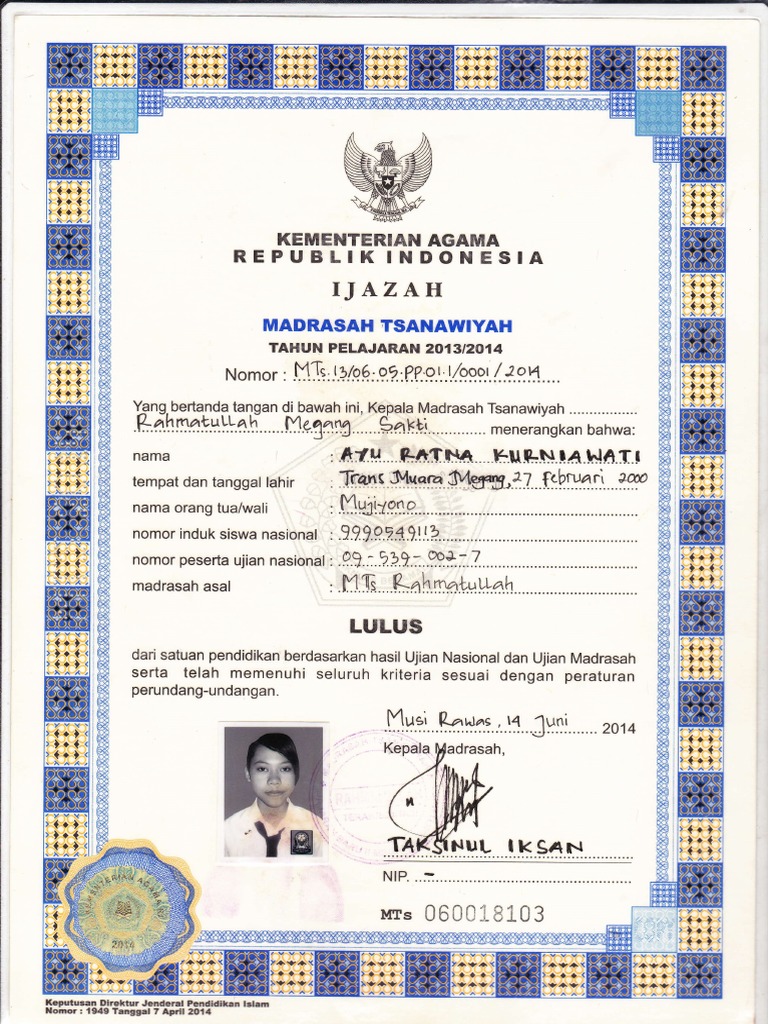 KEMENTERIAN AGAMA
REPUBLIK INDONESIA
IJAZAH
MADRASAH TSANAWIYAH
TAHUN PELAJARAN 2013/2014
Nomor : MTs.13/06.05.PP.01.1/0001/2014
Yang bertanda tangan di bawah ini, Kepala Madrasah Tsanawiyah ............
Rahmatullah Megang Sakti menerangkan bahwa:
nama : AYU RATNA KURNIAWATI
tempat dan tanggal lahir : Trans Muara Megang, 27 Februari 2000
nama orang tua/wali : Mujiyono
nomor induk siswa nasional : 9990549113
nomor peserta ujian nasional : 09-539-002-7
madrasah asal : MTs Rahmatullah
LULUS
dari satuan pendidikan berdasarkan hasil Ujian Nasional dan Ujian Madrasah
serta telah memenuhi seluruh kriteria sesuai dengan peraturan
perundang-undangan.
Musi Rawas, 14 Juni 2014
Kepala Madrasah,
TAKSINUL IKSAN
NIP. -
MTs 060018103
KEMENTERIAN AGAMA
2014
Keputusan Direktur Jenderal Pendidikan Islam
Nomor : 1949 Tanggal 7 April 2014